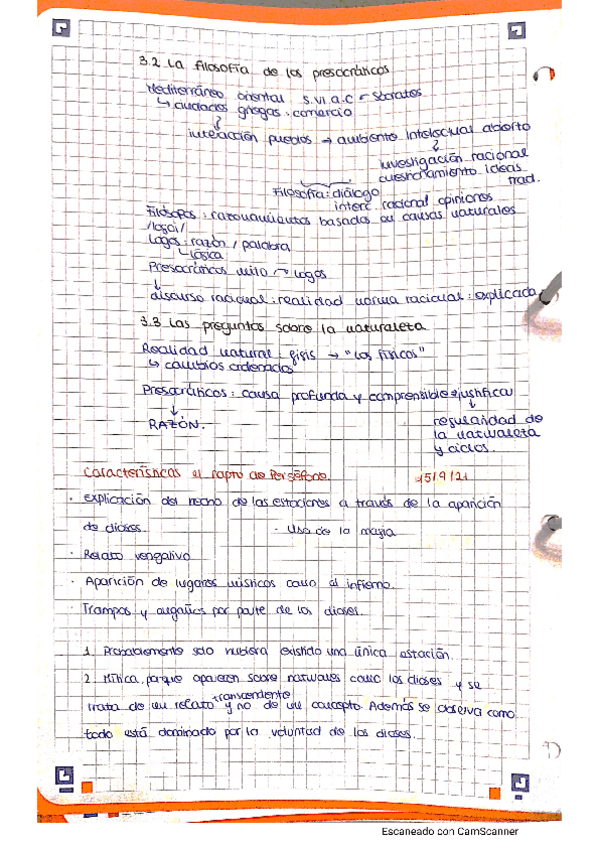 3.2 La filosofía de los presocráticos
Mediterráneo oriental s.VI a.C - Sócrates
↳ ciudades griegas: comercio
interacción pueblos → ambiente intelectual abierto
investigación racional
cuestionamiento ideas
trad.
Filosofía: diálogo
interc. racional opiniones
Filósofos: razonamientos basados en causas naturales
/logoi/
Logos: razón / palabra
↳ lógica
Presocráticos mito → logos
discurso racional: realidad norma racional: explicada
3.3 Las preguntas sobre la naturaleza
Realidad natural: fisis → "Los físicos"
↳ cambios ordenados
Presocráticos: causa profunda y comprensible justifica
RAZÓN.
regularidad de
la naturaleza
y ciclos.
Características el rapto de Perséfone. 15/9/21
· explicación del hecho de las estaciones a través de la aparición
de dioses. · Uso de la magia
· Relato vengativo
· Aparición de lugares místicos como el infierno.
· Trampas y engaños por parte de los dioses.
1. Probablemente solo hubiera existido una única estación.
2. Mítica, porque aparecen sobre naturales como los dioses y se
trata de un relato transcendente y no de un concepto. Además se observa como
todo está dominado por la voluntad de los dioses.
Escaneado con CamScanner